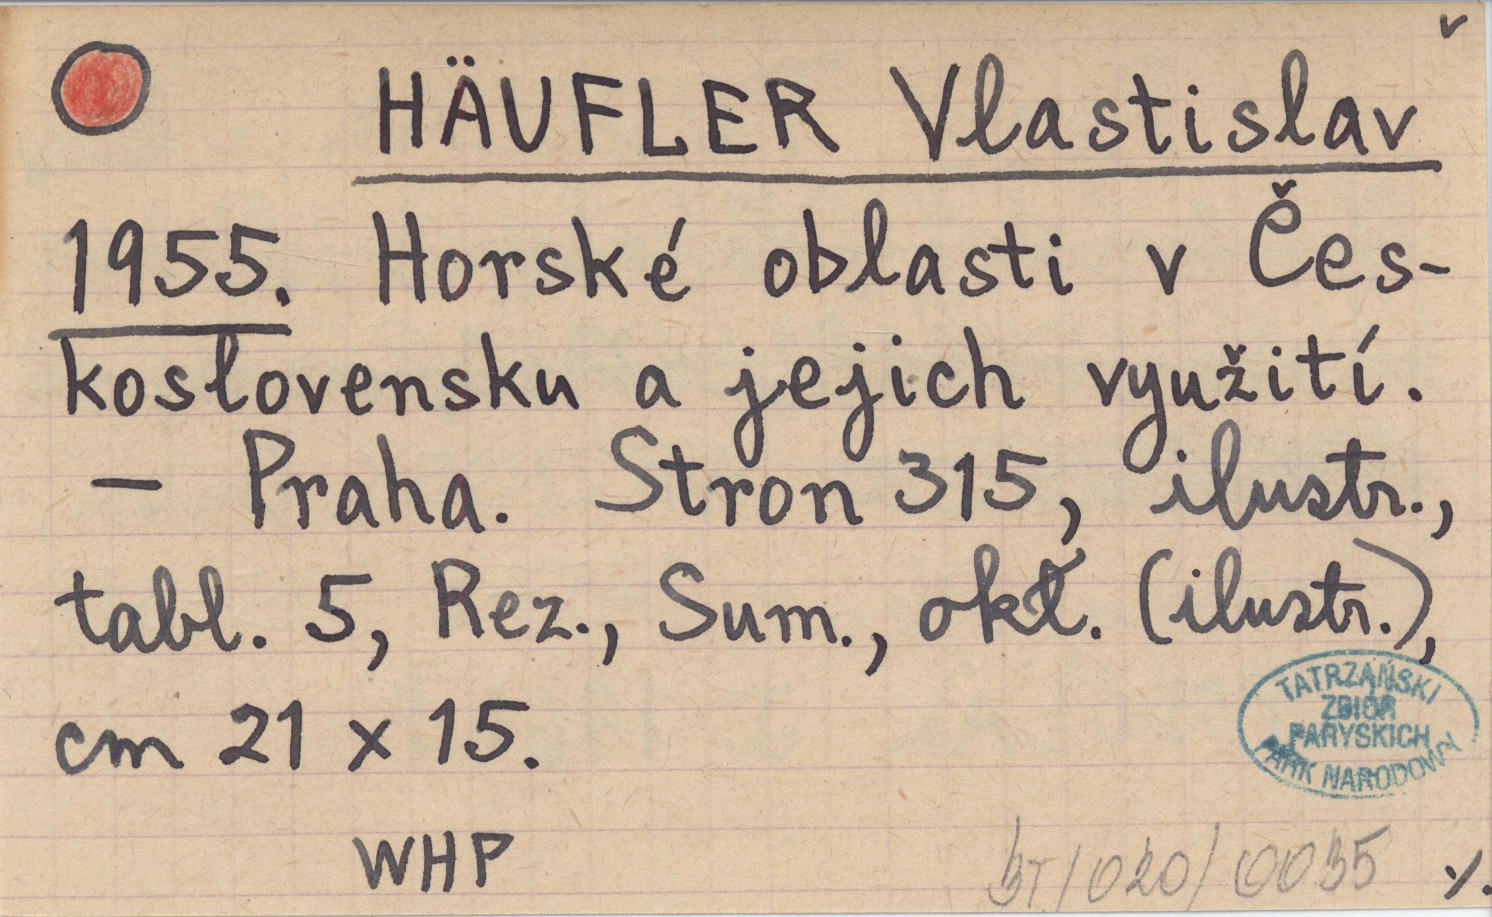 v
HÄUFLER Vlastislav
1955. Horské oblasti v Čes-
koslovensku a jejich využití.
— Praha. Stron 315, ilustr.,
tabl. 5, Rez., Sum., okł. (ilustr.),
cm 21 x 15.
TATRZAŃSKI
ZBIÓR
PARYSKICH
PARK NARODOWY
WHP
BT/020/0035
./.